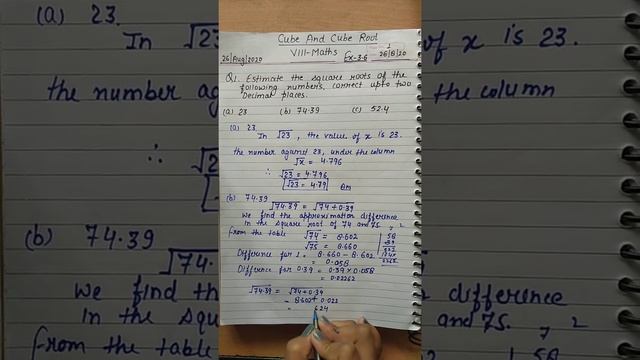 Cube And Cube Root
VIII-Maths
26/Aug/2020
Ex-3.6
1
26/8/20
Q1. Estimate the square roots of the
following numbers, correct upto two
Decimal places.
(a) 23 (b) 74.39 (c) 52.4
(a) 23
In √23, the value of x is 23.
the number against 23, under the column
√x = 4.796
∴ √23 = 4.796
√23 = 4.79 Ans
(b) 74.39
√74.39 = √74+0.39
We find the approximation difference
in the square root of 74 and 75.
from the table √74 = 8.602
√75 = 8.660
Difference for 1 = 8.660 - 8.602
= 0.058
Difference for 0.39 = 0.39 x 0.058
= 0.02262
√74.39 = √74+0.39
= 8.602 + 0.022
= 624
7 2
58
(a) 23.
In √23
the number
∴ √2
(b) 74.39
√74
We find
in the
from the
of x is 23.
the column
and 75.